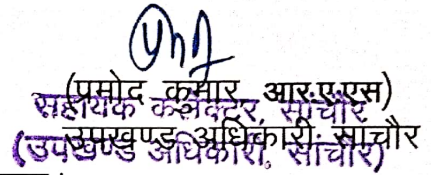 (प्रमोद कुमार आर.ए.एस)
सहायक कलेक्टर, सांचौर
उपखण्ड अधिकारी सांचौर
(उपखण्ड अधिकारी, सांचौर)